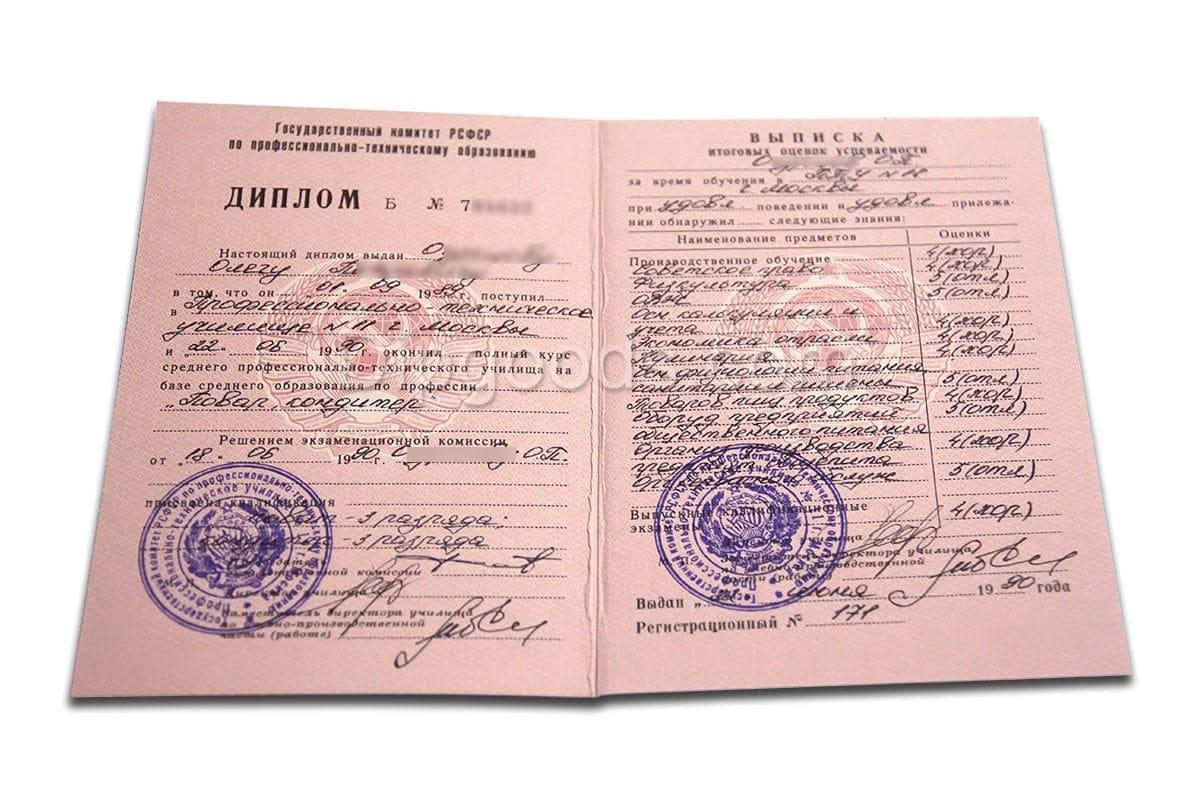 Государственный комитет РСФСР
по профессионально-техническому образованию
ДИПЛОМ Б № 7
Настоящий диплом выдан О.
Олегу П
в том, что он „01“ 09 1989 поступил
в Профессионально-техническое
училище N 11 г Москвы
и „22“ 06 1990 г. окончил полный курс
среднего профессионально-технического училища на
базе среднего образования по профессии
„Повар, кондитер“
Решением экзаменационной комиссии
от „18“ 06 1990 г. О О.П.
присвоена квалификация
повар - 3 разряда,
кондитер - 3 разряда
Председатель
экзаменационной комиссии
Директор училища
Заместитель директора училища
по учебно-производственной
части (работе)
ВЫПИСКА
итоговых оценок успеваемости
О О.П.
за время обучения в ПТУ N 11
г Москвы
при удовл поведении и удовл прилежа-
нии обнаружил следующие знания:
Наименование предметов Оценки
Производственное обучение 4(хор.)
Советское право 4(хор.)
Физкультура 5(отл)
5(отл.)
Осн калькуляции и
учета 4(хор.)
Экономика отрасли 4(хор.)
Кулинария 4(хор.)
Осн физиологии питания
санитарии гигиены 5(отл.)
Товаров пищ продуктов 4(хор.)
Оборуд предприятий 5(отл)
общественного питания
Организ производства 4(хор.)
5(отл)
Выпускные квалификационные
экзамены 4(хор.)
Директор училища
Заместитель директора училища
по учебно-производственной
части (работе)
Выдан „22“ июня 1990 года
Регистрационный №